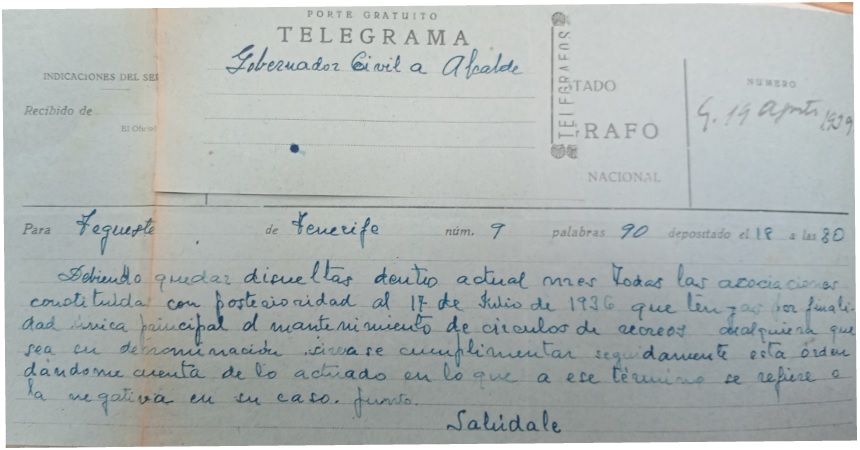 PORTE GRATUITO
TELEGRAMA
Gobernador Civil a Alcalde
INDICACIONES DEL SER
Recibido de
El Oficial
TELEGRAFOS
TADO
RAFO
NACIONAL
NÚMERO
G. 19 Agosto 1939
Para Tegueste de Tenerife núm. 9 palabras 90 depositado el 18 a las 30
Debiendo quedar disueltas dentro actual mes todas las asociaciones
constituidas con posterioridad al 17 de Julio de 1936 que tengas por finali-
dad única principal el mantenimiento de circulos de recreos cualquiera que
sea su denominación sirvase cumplimentar seguidamente esta órden
dándome cuenta de lo actuado en lo que a ese término se refiere o
la negativa en su caso. punto.
Salúdale